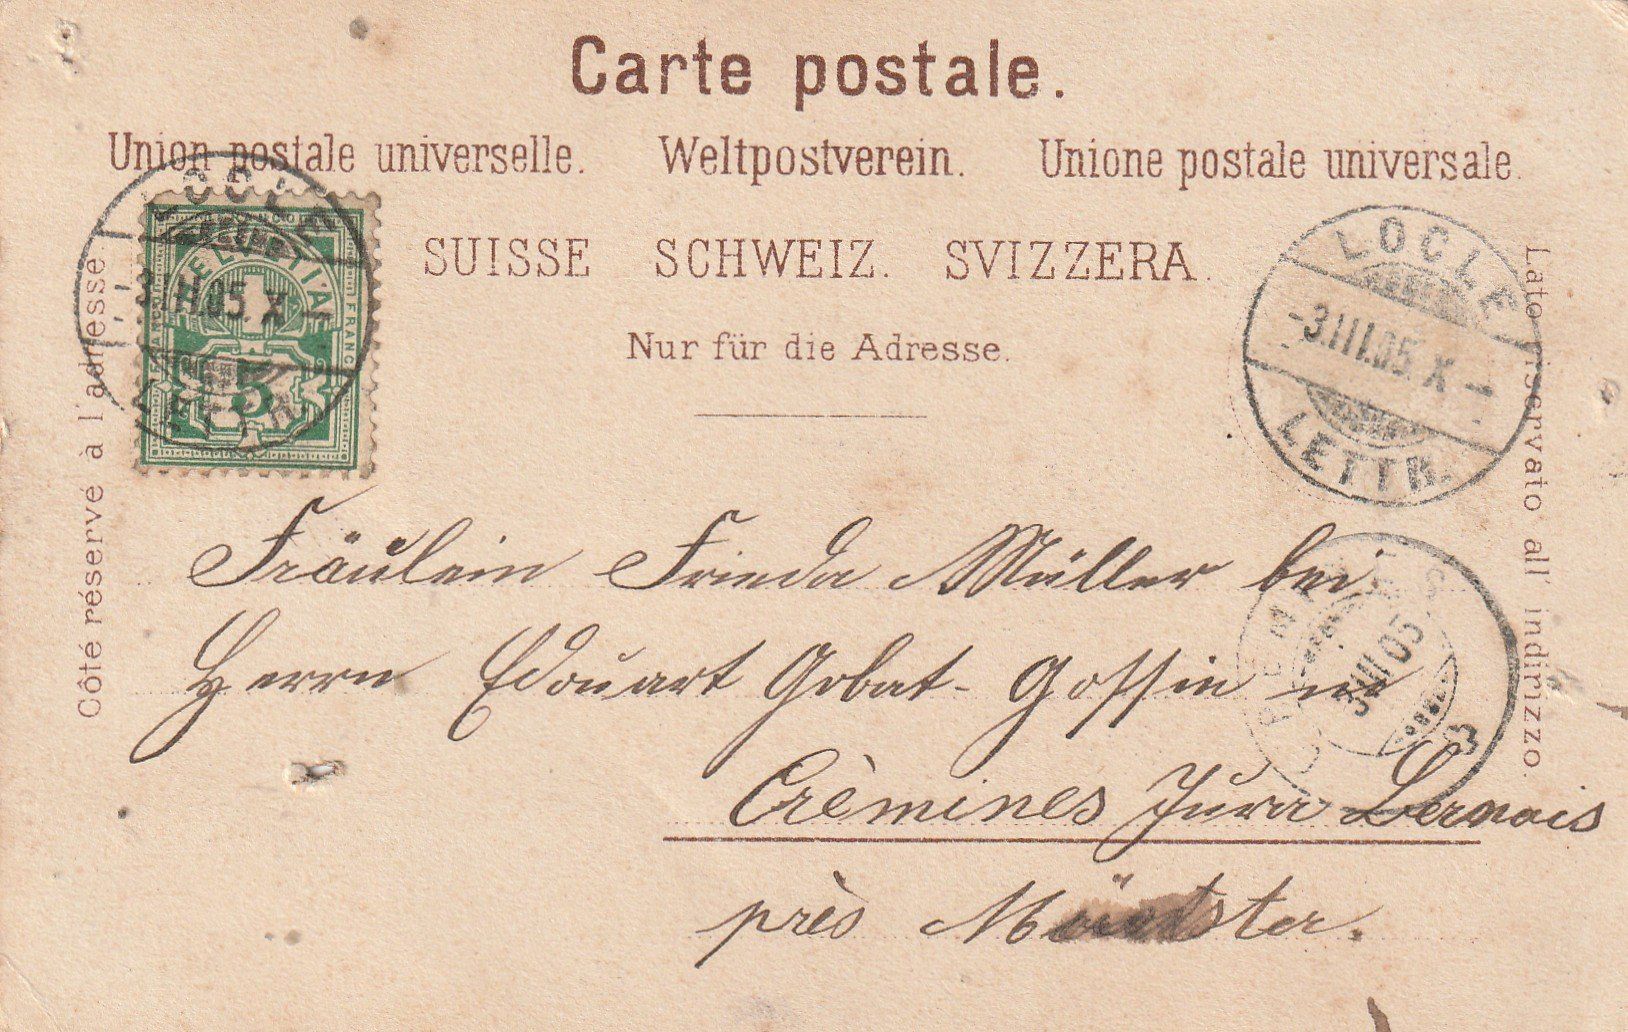 Carte postale.
Union postale universelle. Weltpostverein. Unione postale universale.
SUISSE SCHWEIZ. SVIZZERA.
Nur für die Adresse.
Côté réservé à l'adresse
Lato riservato all' indirizzo.
FRANCO
HELVETIA
5
LOCLE
-3.III.05.X-
LETTR.
LOCLE
-3.III.05.X-
LETTR.
CREMINES
3.III.05
3
Fräulein Frieda Müller bei
Herrn Edouart Gobat-Gossin in
Crèmines Jura Bernois
près Münster.